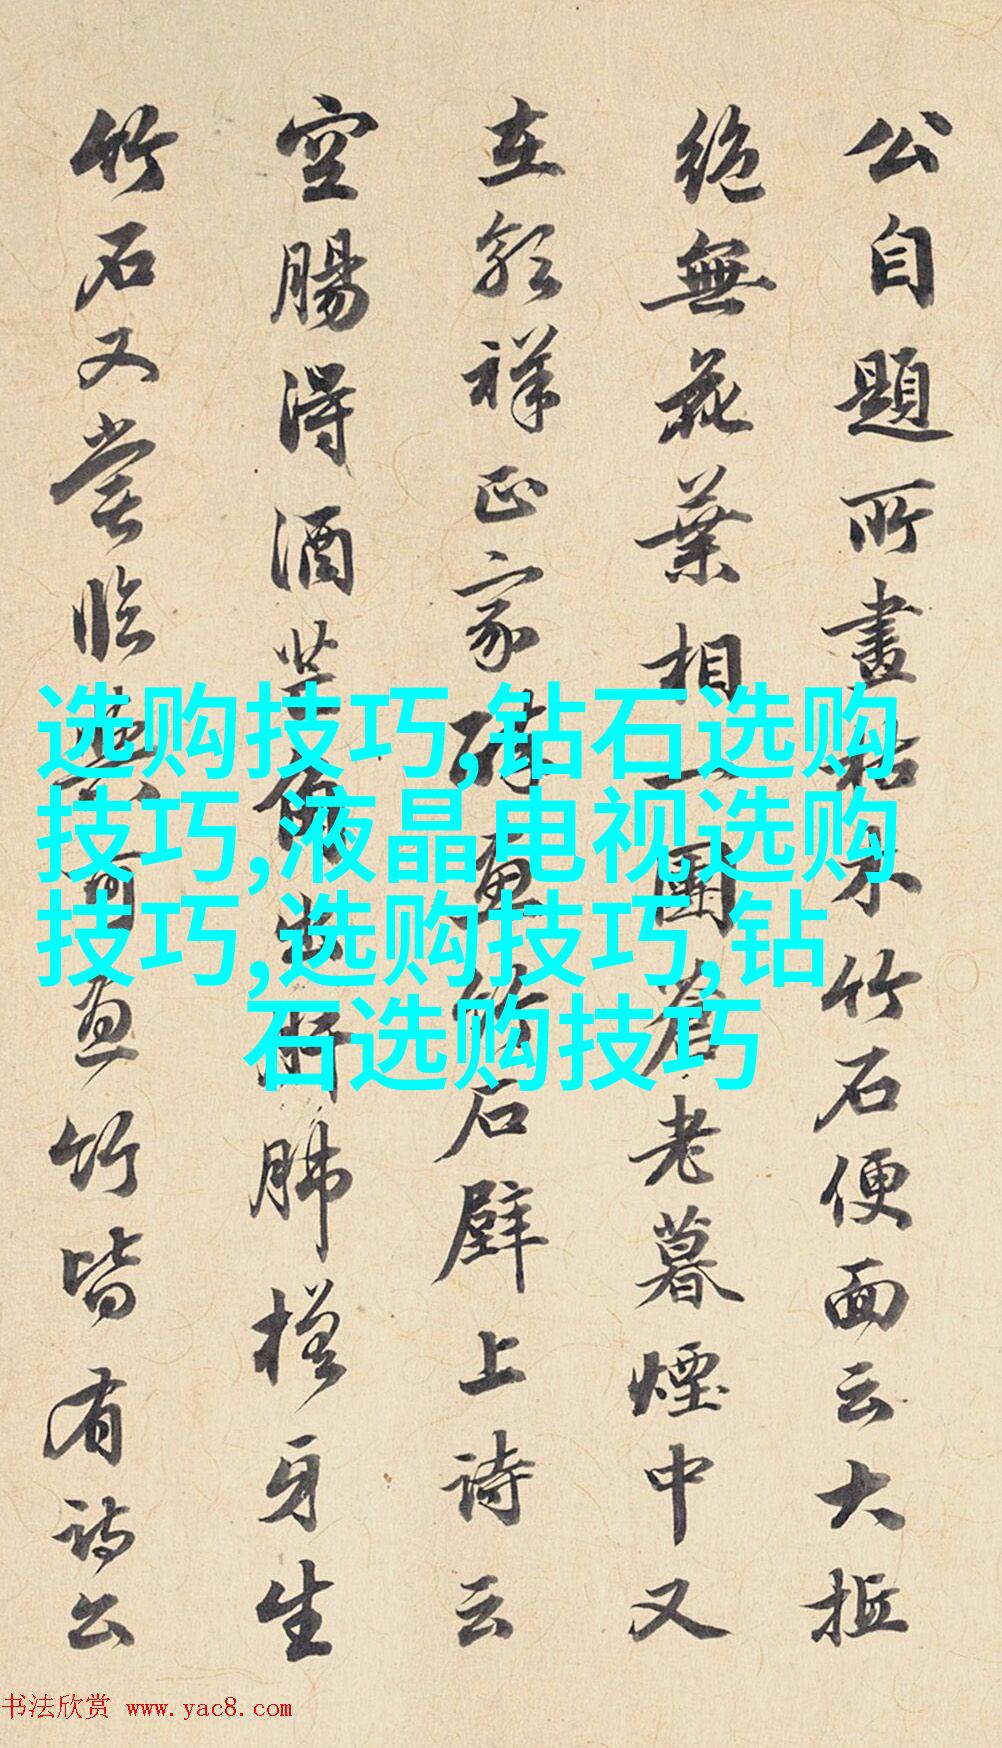 公自题所畫枯木竹石便面云大抵
絶無花葉相一團蒼老暮煙中又
在郭祥正家醉畫竹石壁上詩云
空腸得酒芒角出肝肺槎牙生
竹石又嘗臨與可画竹皆有詩公
选购技巧,钻石选购
技巧,液晶电视选购
技巧,选购技巧,钻
石选购技巧
书法欣赏 www.yac8.com